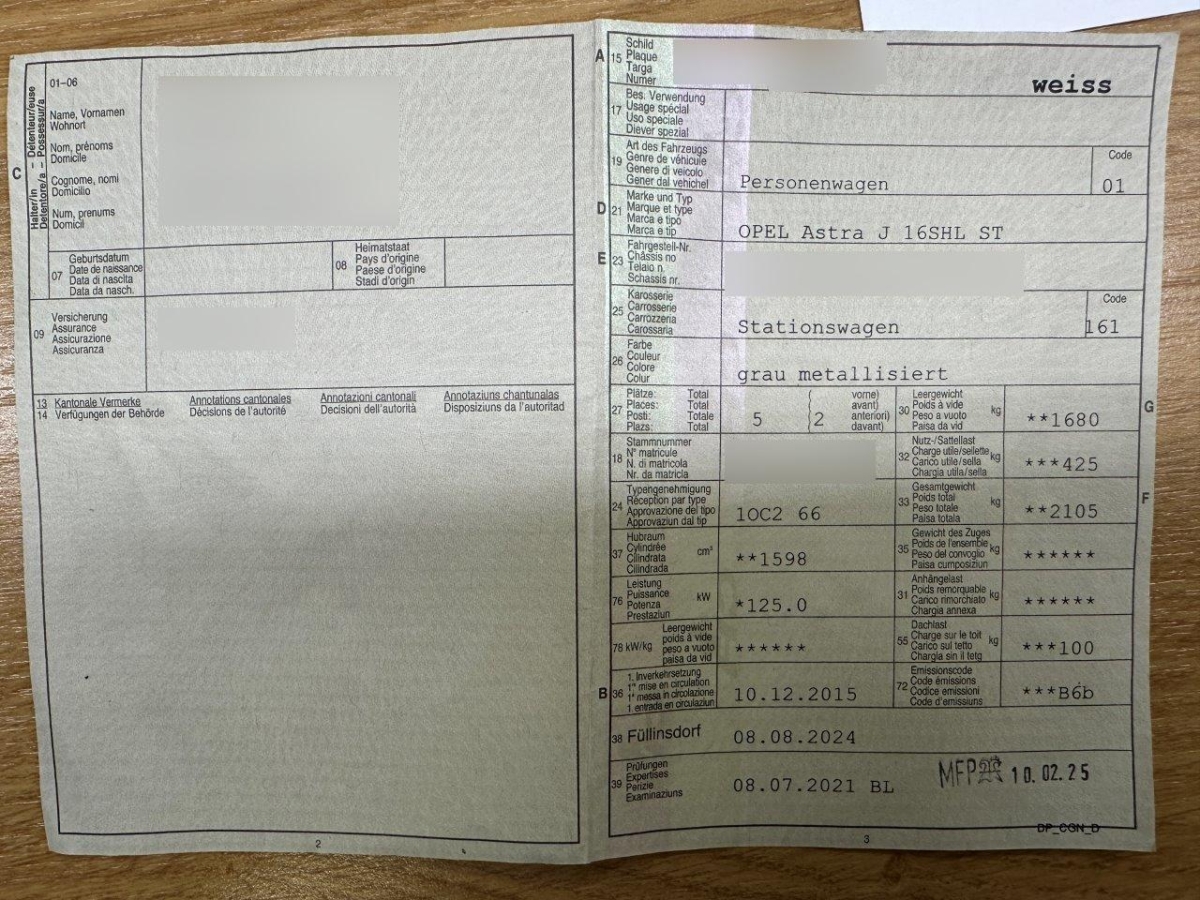 C
Halter/in – Détenteur/euse
Detentore/a – Possessur/a
01–06
Name, Vornamen
Wohnort
Nom, prénoms
Domicile
Cognome, nomi
Domicilio
Num, prenums
Domicil
07
Geburtsdatum
Date de naissance
Data di nascita
Data da nasch.
08
Heimatstaat
Pays d'origine
Paese d'origine
Stadi d'origin
09
Versicherung
Assurance
Assicurazione
Assicuranza
13 Kantonale Vermerke Annotations cantonales Annotazioni cantonali Annotaziuns chantunalas
14 Verfügungen der Behörde Décisions de l'autorité Decisioni dell'autorità Disposiziuns da l'autoritad
2
A 15
Schild
Plaque
Targa
Numer
weiss
17
Bes. Verwendung
Usage spécial
Uso speciale
Diever spezial
19
Art des Fahrzeugs
Genre de véhicule
Genere di veicolo
Gener dal vehichel
Personenwagen
Code
01
D 21
Marke und Typ
Marque et type
Marca e tipo
Marca e tip
OPEL Astra J 16SHL ST
E 23
Fahrgestell-Nr.
Châssis no
Telaio n.
Schassis nr.
25
Karosserie
Carrosserie
Carrozzeria
Carossaria
Stationswagen
Code
161
26
Farbe
Couleur
Colore
Colur
grau metallisiert
27
Plätze: Total
Places: Total
Posti: Totale
Plazs: Total
5
2
vorne)
avant)
anteriori)
davant)
30
Leergewicht
Poids à vide
Peso a vuoto
Paisa da vid
kg
**1680
G
18
Stammnummer
N° matricule
N. di matricola
Nr. da matricla
32
Nutz-/Sattellast
Charge utile/sellette
Carico utile/sella
Chargia utila/sella
kg
***425
24
Typengenehmigung
Réception par type
Approvazione del tipo
Approvaziun dal tip
1OC2 66
33
Gesamtgewicht
Poids total
Peso totale
Paisa totala
kg
**2105
F
37
Hubraum
Cylindrée
Cilindrata
Cilindrada
cm³
**1598
35
Gewicht des Zuges
Poids de l'ensemble
Peso del convoglio
Paisa cumposiziun
kg
******
76
Leistung
Puissance
Potenza
Prestaziun
kW
*125.0
31
Anhängelast
Poids remorquable
Carico rimorchiato
Chargia annexa
kg
******
78 kW/kg
Leergewicht
poids à vide
peso a vuoto
paisa da vid
******
55
Dachlast
Charge sur le toit
Carico sul tetto
Chargia sin il tetg
kg
***100
B 36
1. Inverkehrsetzung
1re mise en circulation
1a messa in circolazione
1. entrada en circulaziun
10.12.2015
72
Emissionscode
Code émissions
Codice emissioni
Code d'emissiuns
***B6b
38 Füllinsdorf
08.08.2024
39
Prüfungen
Expertises
Perizie
Examinaziuns
08.07.2021 BL
MFP 10.02.25
DP_CGN_D
3